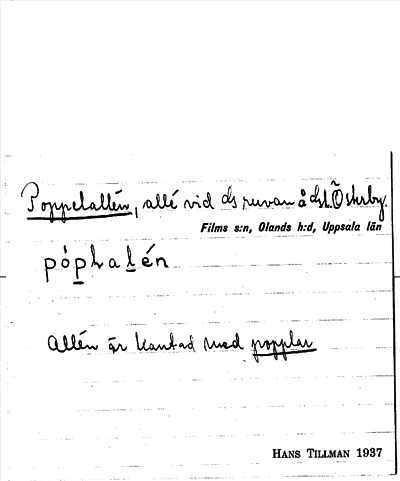 Poppelallén, allé vid ds ruvan å dst. Österby.
Films s:n, Olands h:d, Uppsala län
pópalén
Allén är kantad med popplar
HANS TILLMAN 1937